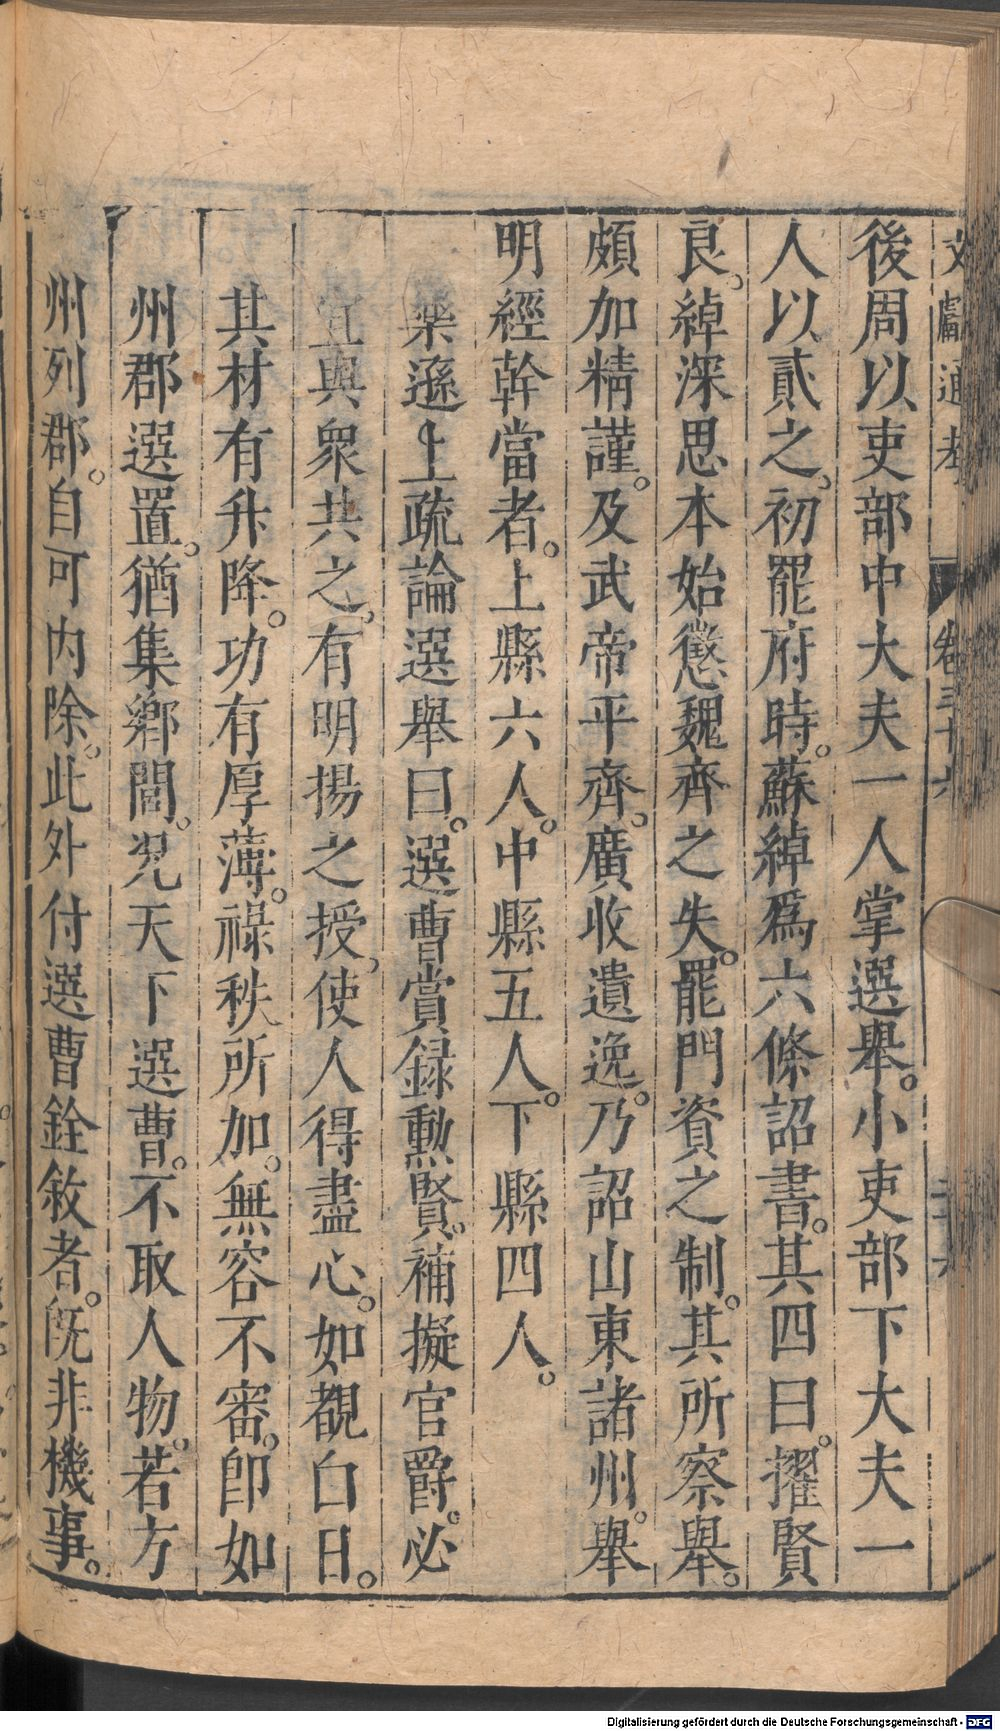 文獻通考 卷三十六
後周以吏部中大夫一人掌選舉。小吏部下大夫一
人以貳之。初罷府時。蘇綽爲六條詔書。其四曰。擢賢
良。綽深思本始懲魏齊之失。罷門資之制。其所察舉。
頗加精謹。及武帝平齊。廣收遺逸。乃詔山東諸州。舉
明經幹當者。上縣六人。中縣五人。下縣四人。
樂遜上疏論選舉曰。選曹賞録勳賢。補擬官爵。必
宜與衆共之。有明揚之授。使人得盡心。如覩白日。
其材有升降。功有厚薄。祿秩所加。無容不審。卽如
州郡選置。猶集鄉閭。況天下選曹。不取人物。若方
州列郡。自可内除。此外付選曹銓敘者。旣非機事。
Digitalisierung gefördert durch die Deutsche Forschungsgemeinschaft - DFG